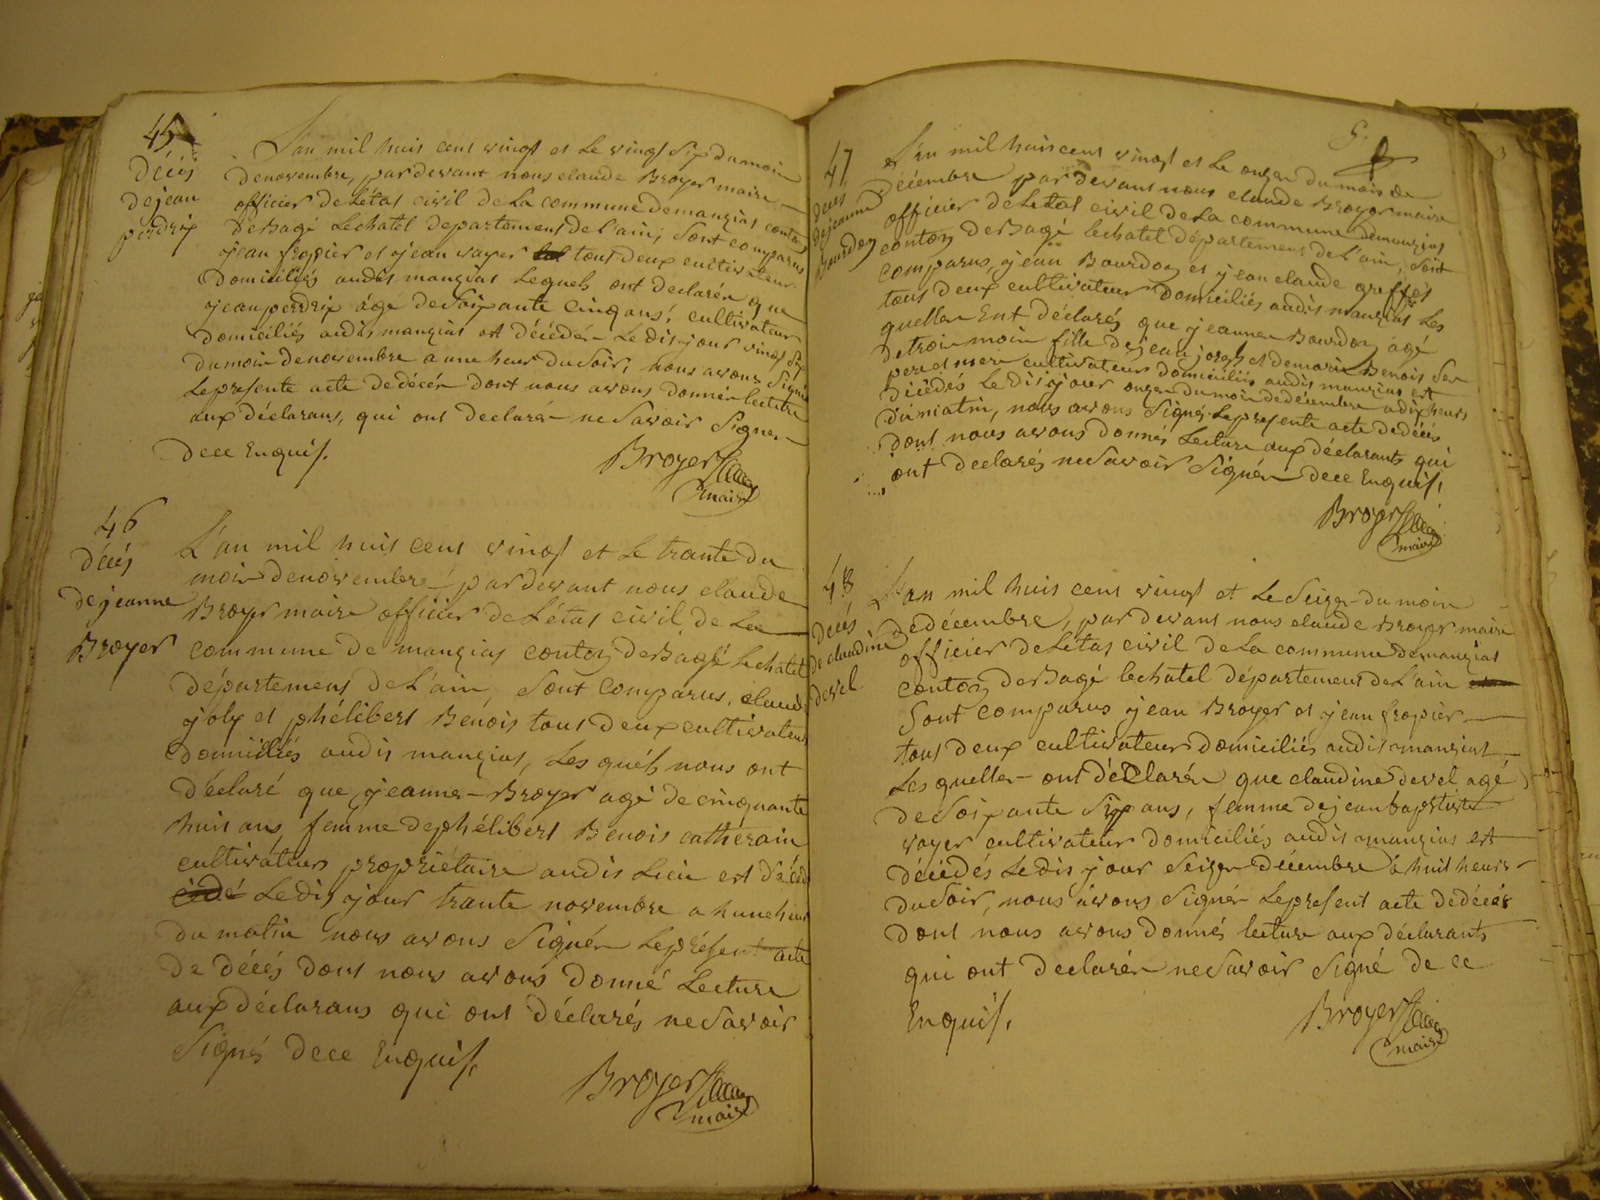 45
Décès
de jean
perdrix
L'an mil huit cent vingt et le vingt six du mois
de novembre, par devant nous claude Broyer maire
officier de L'état civil de La commune de manziat canton
de Bagé Lechatel departement de L'ain, Sont comparus
jean fropier et jean vayer tout deux cultivateur
Domiciliés audit manziat Lequels ont declarér que
jean perdrix âgé de Soixante Cinq ans, cultivateur
Domiciliés audit manziat est décédér Le dit jour vingt Six
du mois de novembre a une heur du Soir, nous avons Signér
Le presente acte de décér dont nous avons donnér lecture
aux déclarans, qui ont declarér ne Savoir Signer
de ce Enquis.
Broyer
maire
46
Décés
de jeanne
Broyer
L'an mil huit cent vingt et Le trante du
mois de novembre, par devant nous claude
Broyer maire officier de L'état civil de La
commune de manziat canton de Bagé Lechatel
département de L'ain, Sont Comparus, claude
joly et phélibert Benoit tout deux cultivateur
Domiciliés audit manziat, Les quéls nous ont
Déclaré que jeanne Broyer agé de cinquante
huit ans, femme de phélibert Benoit catherain
cultivateur propriétaire audit Lieu est décéd
cédé Le dit jour trante novembre a hune heur
du matin nous avons Signér Le présent acte
de décés dont nous avons donné Lecture
aux déclarans qui ont déclarés ne Savoir
Signés de ce Enquis,
Broyer
maire
5.
47
Decès
de jeanne
Bourdon
L'an mil huit cent vingt et Le onze du mois de
Décembre par devant nous claude Broyer maire
officier de L'état civil de La commune de manziat
canton de Bagé lechatel département de L'ain, Sont
Comparus, jean Bourdon et jean claude greffet
tous deux cultivateur Domiciliés audit manziat Les
quelles Ent déclarés que jeanne Bourdon agé
de trois mois fille de jean joseph et de marie Benoit Ses
pere et mere cultivateur Domiciliés audit manziat est
Décédés Le dit jour onze du mois de décembre a dix heurs
du matin, nous avons Signés Le presente acte de décés
dont nous avons donnés Lecture aux déclarants qui
ont declarés ne Savoir Signér de ce Enquis,
Broyer
maire
48
Decés
de claudine
devel
L'an mil huit cent vingt et Le Seize du mois
de décembre, par devant nous claude Broyer maire
officier de L'état civil de La commune de manziat
canton de Bagé lechatel département de L'ain
Sont comparus jean Broyer et jean fropier
tous deux cultivateur Domiciliés audit manziat
Les quelles ont déClarér que claudine devel agé
de Soixante Six ans, femme de jean baptiste
vayer cultivateur domiciliés audit manziat est
décédés Le dit jour Seize décembre à huit heurs
du Soir, nous avons Signér Le present acte de décès
dont nous avons donnés lecture aux déclarants
qui ont declarér ne Savoir Signé de ce
Enquis,
Broyer
maire